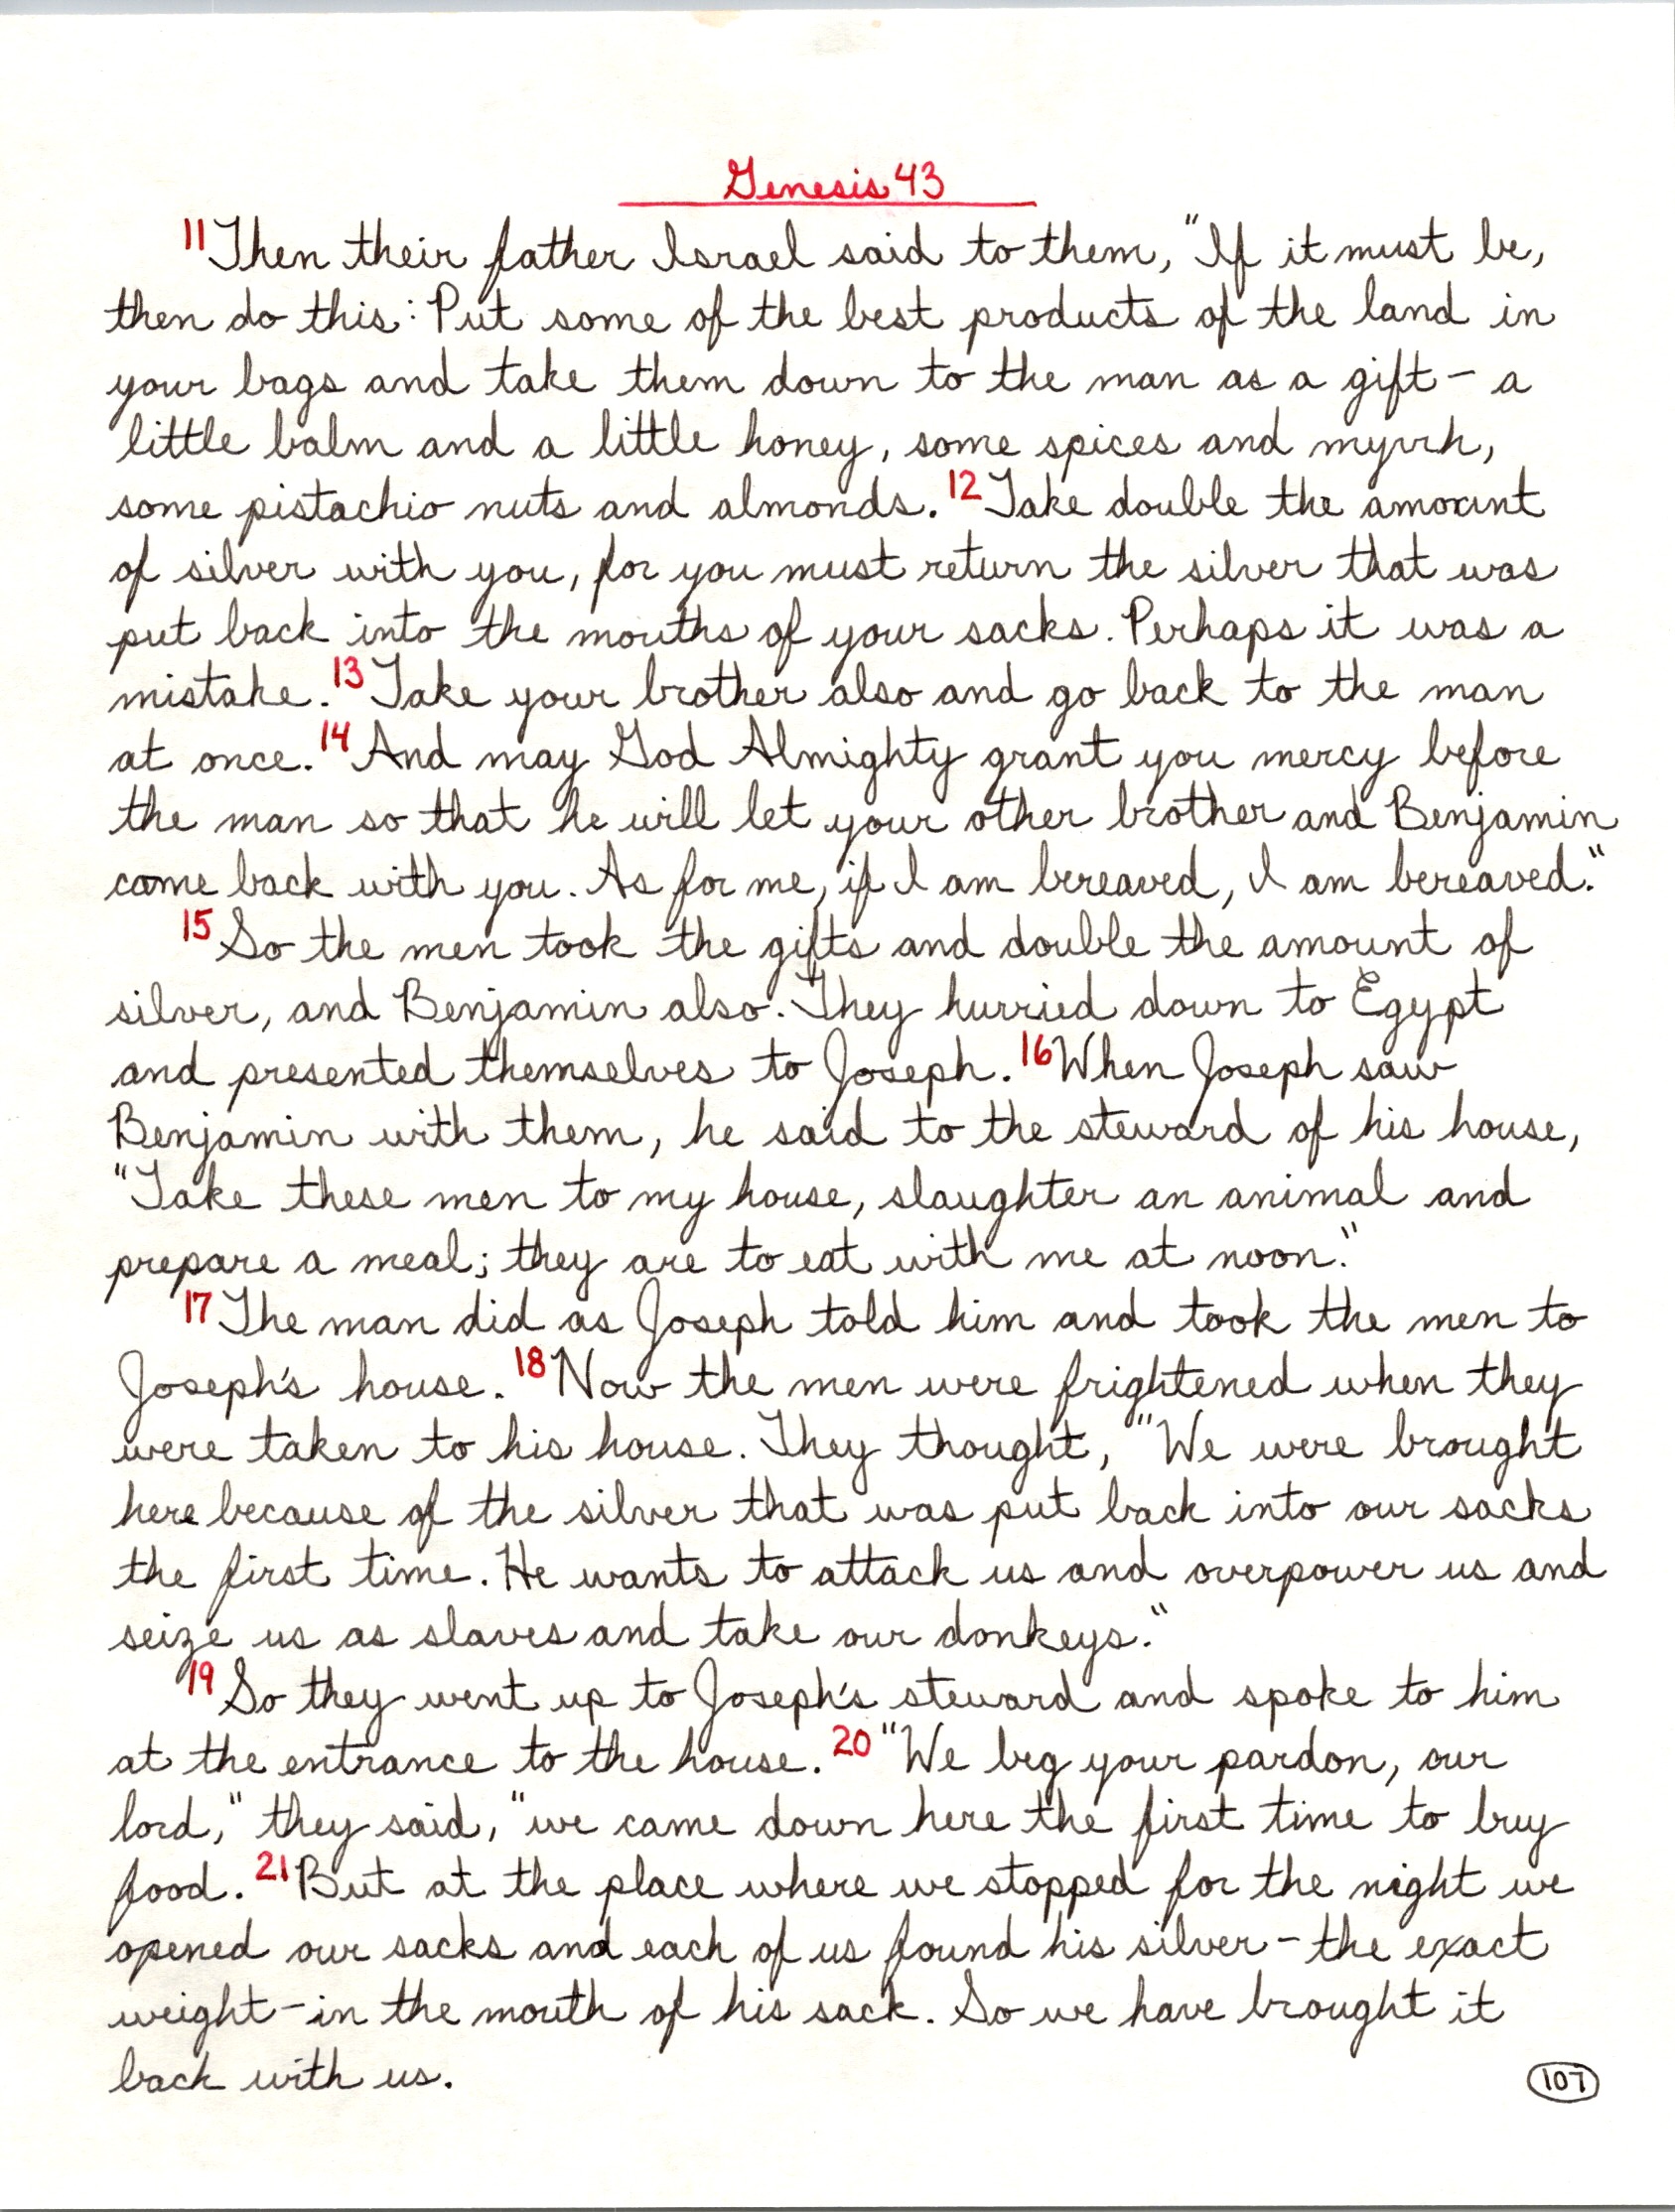 Genesis 43
11 Then their father Israel said to them, "If it must be,
then do this: Put some of the best products of the land in
your bags and take them down to the man as a gift - a
little balm and a little honey, some spices and myrrh,
some pistachio nuts and almonds. 12 Take double the amount
of silver with you, for you must return the silver that was
put back into the mouths of your sacks. Perhaps it was a
mistake. 13 Take your brother also and go back to the man
at once. 14 And may God Almighty grant you mercy before
the man so that he will let your other brother and Benjamin
come back with you. As for me, if I am bereaved, I am bereaved."
15 So the men took the gifts and double the amount of
silver, and Benjamin also. They hurried down to Egypt
and presented themselves to Joseph. 16 When Joseph saw
Benjamin with them, he said to the steward of his house,
"Take these men to my house, slaughter an animal and
prepare a meal; they are to eat with me at noon."
17 The man did as Joseph told him and took the men to
Joseph's house. 18 Now the men were frightened when they
were taken to his house. They thought, "We were brought
here because of the silver that was put back into our sacks
the first time. He wants to attack us and overpower us and
seize us as slaves and take our donkeys."
19 So they went up to Joseph's steward and spoke to him
at the entrance to the house. 20 "We beg your pardon, our
lord," they said, "we came down here the first time to buy
food. 21 But at the place where we stopped for the night we
opened our sacks and each of us found his silver - the exact
weight - in the mouth of his sack. So we have brought it
back with us.
107